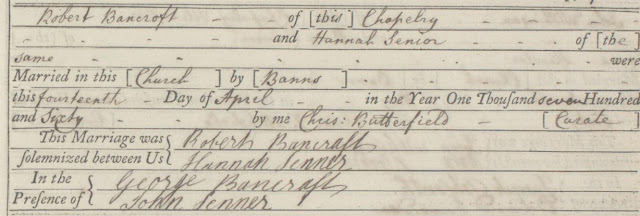 Robert Bancroft - - of [this] Chapelry
- - - - - and Hannah Senior - - of [the]
same - - - - - - - - were
Married in this [Church] by [Banns]
this fourteenth - Day of April - - in the Year One Thousand seven Hundred
and Sixty - - by me Chris: Butterfield - [Curate]
This Marriage was { Robert Bancroft
solemnized between Us { Hannah Senner
In the { George Bancroft
Presence of { John Senner